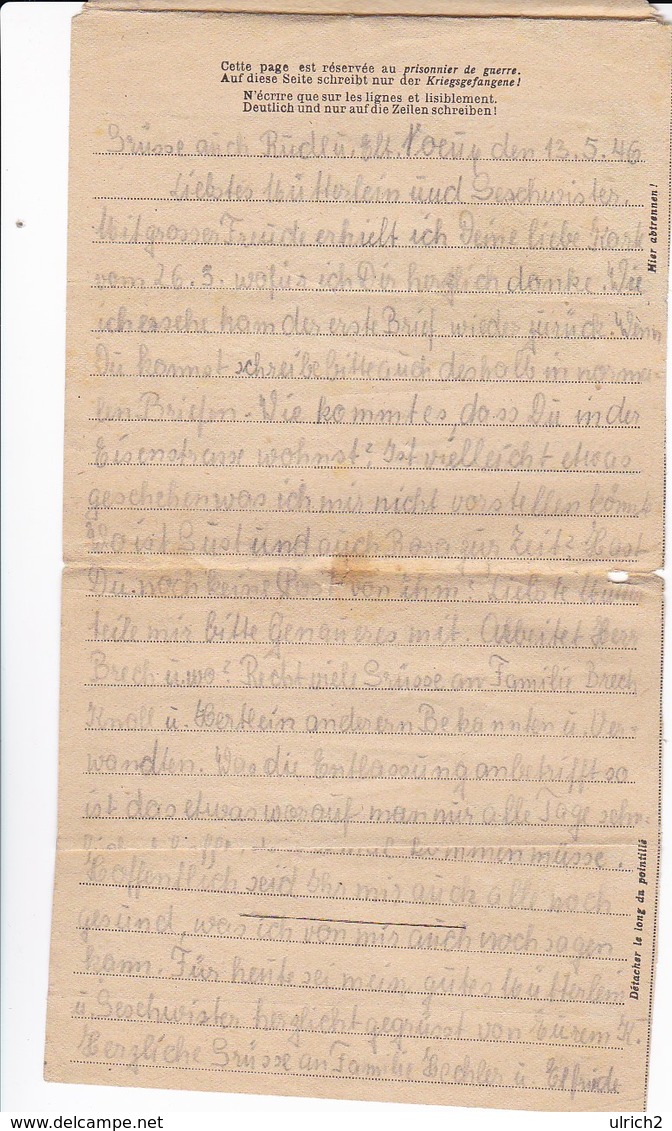 Cette page est réservée au prisonnier de guerre.
Auf diese Seite schreibt nur der Kriegsgefangene!
N'écrire que sur les lignes et lisiblement.
Deutlich und nur auf die Zeilen schreiben!
Grüsse auch Rudl u. Elt. Voeuy den 13.5.46
Liebstes Mütterlein und Geschwister.
Mit grosser Freude erhielt ich Deine liebe Karte
vom 26.3. wofür ich Dir herzlich danke. Wie
ich ersehe kam der erste Brief wieder zurück. Wenn
Du kannst schreibe bitte auch deshalb in norma-
len Briefen. Wie kommt es, dass Du in der
Eisenstrasse wohnst? Ist vielleicht etwas
geschehen was ich mir nicht vorstellen könnte
Wo ist Gust und auch Rosa zur Zeit? Hast
Du noch keine Post von ihm? Liebste Mutter
teile mir bitte Genaueres mit. Arbeitet Herr
Brech u. wo? Recht viele Grüsse an Familie Brech
Knoll u. Hertlein anderern Bekannten u. Ver-
wandten. Was die Entlassung anbetrifft so
ist das etwas worauf man nur alle Tage sehn-
kommen müsse.
Hoffentlich seid Ihr mir auch alle noch
gesund, was ich von mir auch noch sagen
kann. Für heute sei mein gutes Mütterlein
u. Geschwister herzlicht gegrüsst von Eurem K.
Herzliche Grüsse an Familie u. Elfriede
Hier abtrennen!
Détacher le long du pointillé
ulrich2